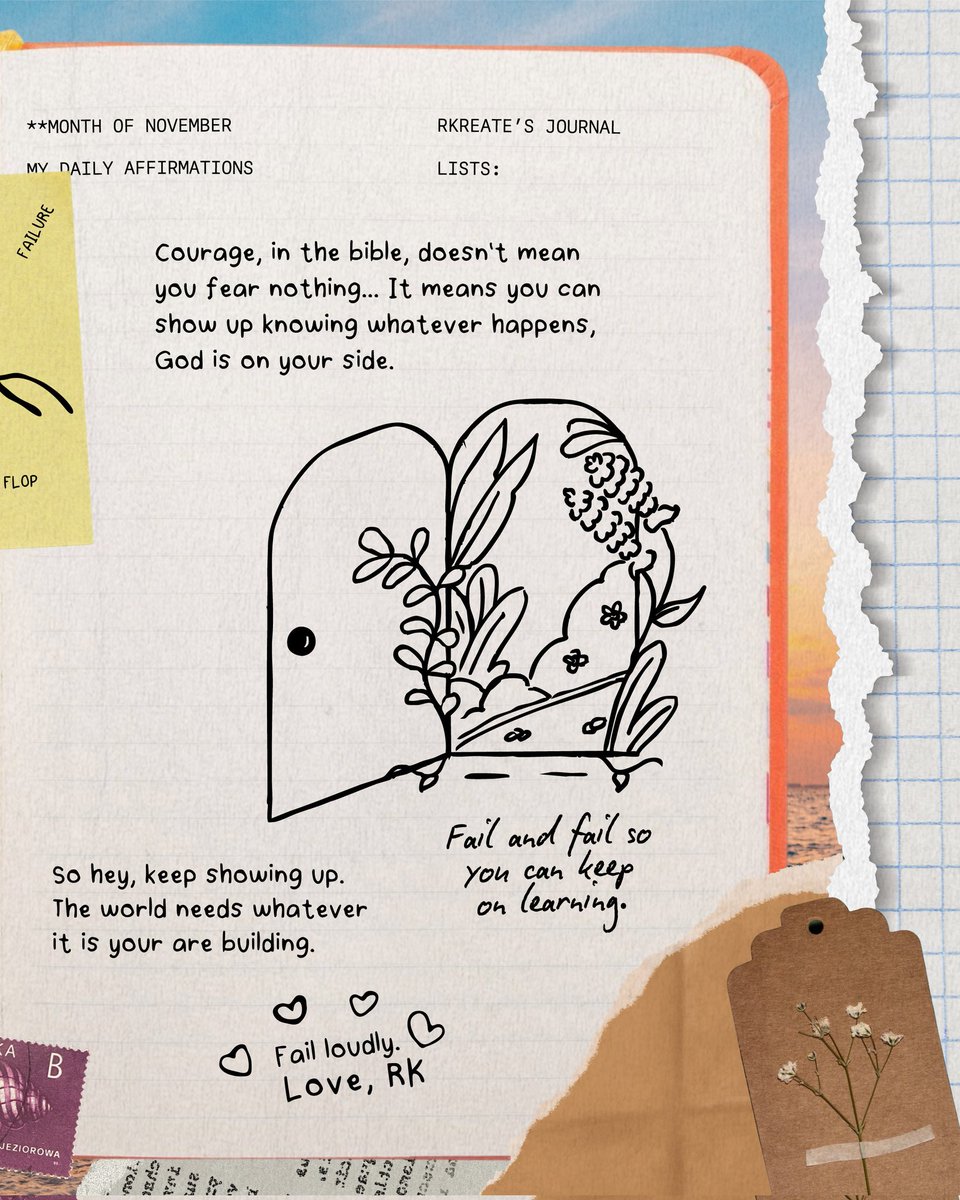 **MONTH OF NOVEMBER
RKREATE'S JOURNAL
MY DAILY AFFIRMATIONS
LISTS:
FAILURE
FLOP
Courage, in the bible, doesn't mean
you fear nothing... It means you can
show up knowing whatever happens,
God is on your side.
Fail and fail so
you can keep
on learning.
So hey, keep showing up.
The world needs whatever
it is your are building.
Fail loudly.
Love, RK
KA B
JEZIOROWA